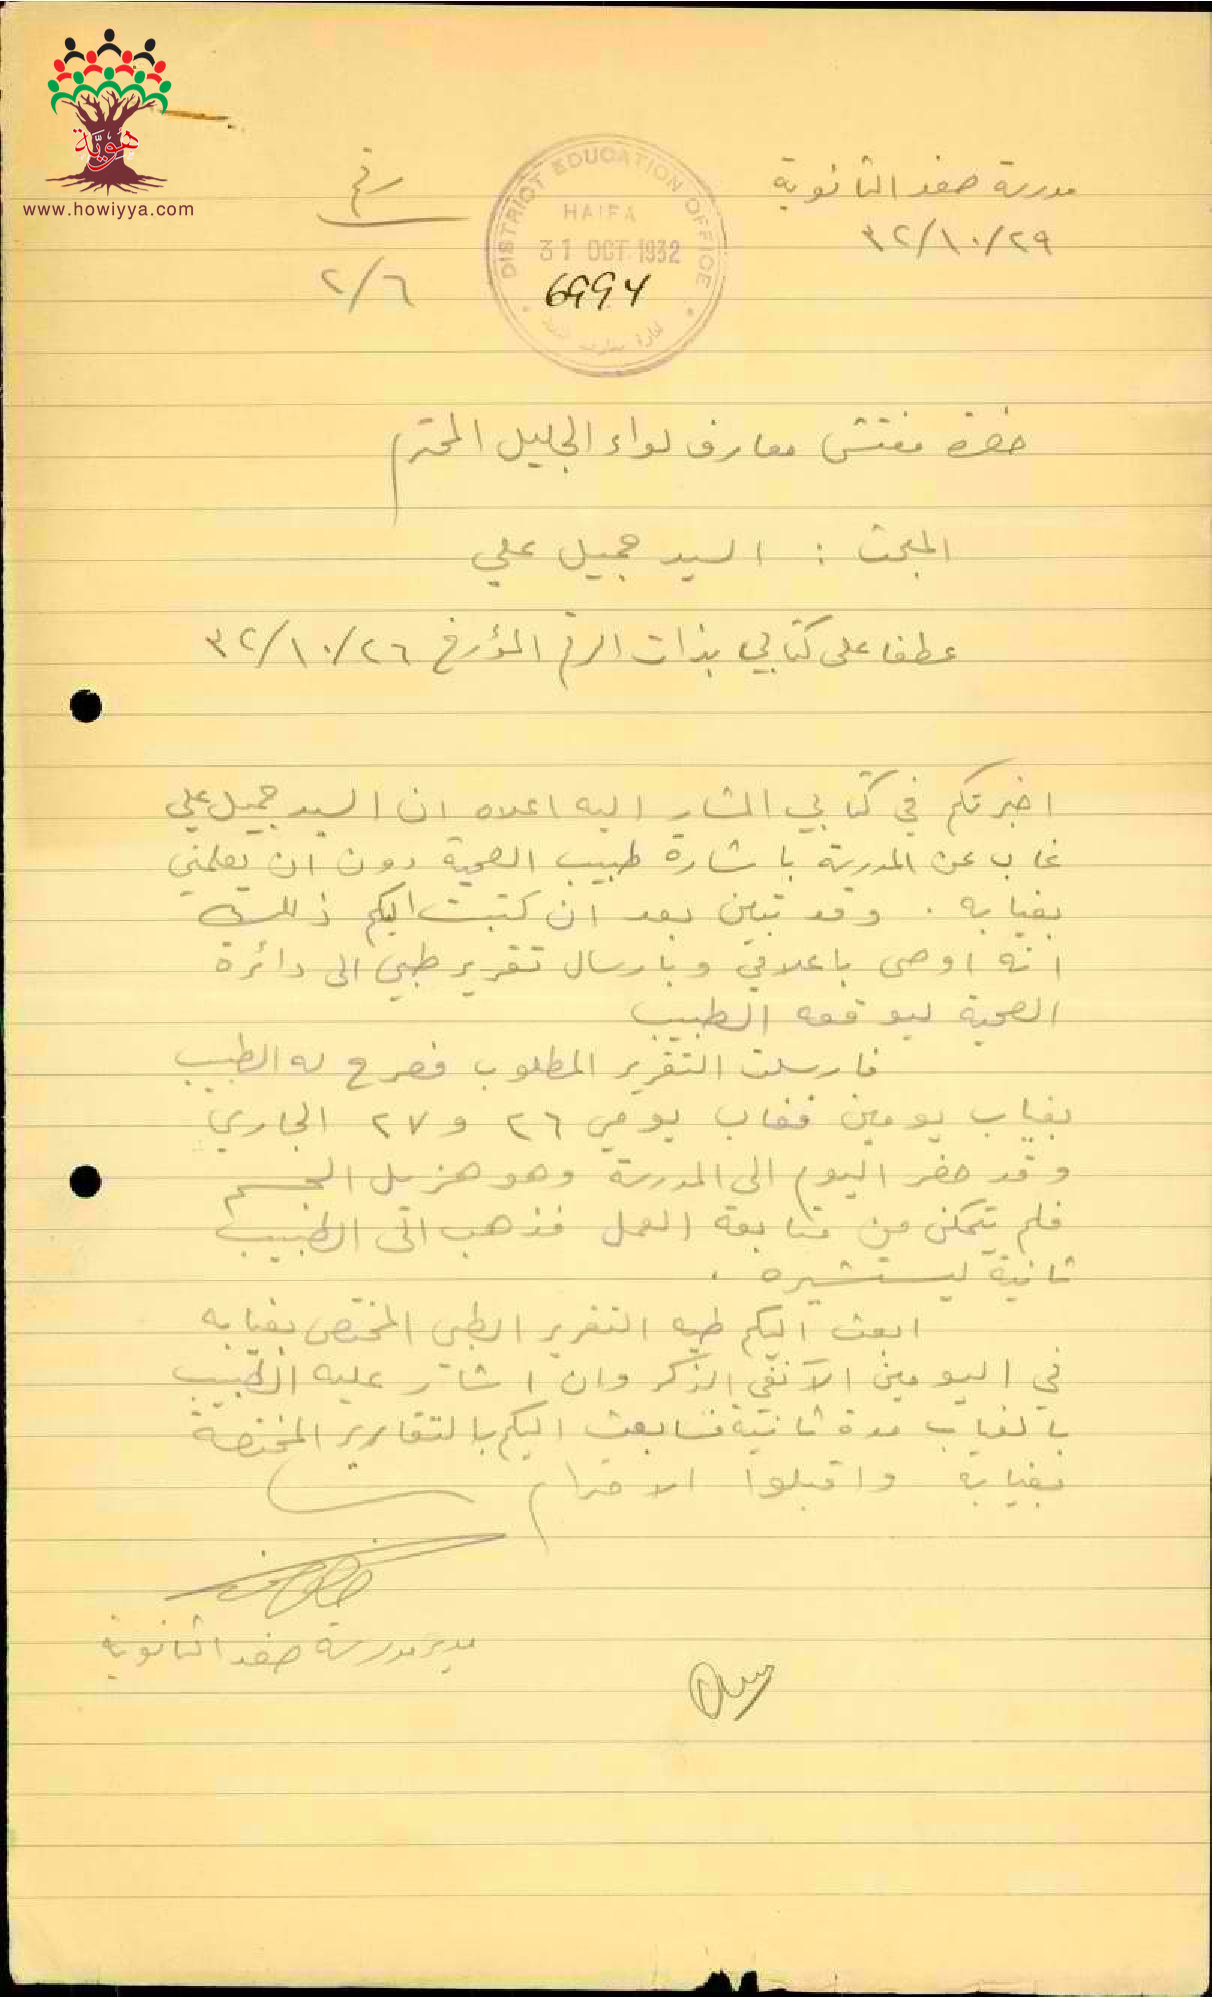 هوية
www.howiyya.com
مدرسة صفد الثانوية
٣٢/١٠/٢٩
رقم
٢/٦
DISTRICT EDUCATION OFFICE
HAIFA
31 OCT 1932
6994
حضرة مفتش معارف لواء الجليل المحترم
المبحث : السيد جميل علي
عطفا على كتابي بذات الرقم المؤرخ ٣٢/١٠/٢٦
اخبرتكم في كتابي المشار اليه اعلاه ان السيد جميل علي
غاب عن المدرسة باشارة طبيب الصحية دون ان يعلمني
بغيابه . وقد تبين بعد ان كتبت اليكم ذلك
انه اوصى باعلامي وبارسال تقرير طبي الى دائرة
الصحية ليوقعه الطبيب
فارسلت التقرير المطلوب فصرح له الطبيب
بغياب يومين فغاب يومي ٢٦ و ٢٧ الجاري
وقد حضر اليوم الى المدرسة وهو هزيل الجسم
فلم يتمكن من متابعة العمل فذهب الى الطبيب
ثانية ليستشيره .
ابعث اليكم طيه التقرير الطبي المختص بغيابه
في اليومين الآنفي الذكر وان اشار عليه الطبيب
بالغياب مدة ثانية فسابعث اليكم بالتقارير المختصة
بغيابه واقبلوا الاحترام
مدير مدرسة صفد الثانوية